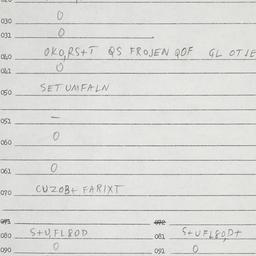 030 0
031 0
040 OKO,RS+T QS FROJEN QOF GL OTJE
041 0
050 SETUMFALN
051 –
060 0
061 0
070 CUZOB+ FARIXT
071 072
080 S+U,FL80D 081 S+UFL80,D+
090 0 091 0